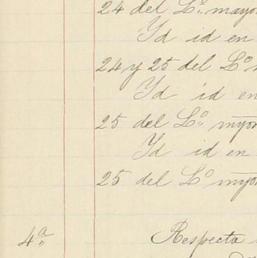 24 del L.º mayor
Yd id en
24 y 25 del L.º m
Yd id en
25 del L.º myor
Yd id en
25 del L.º myor
4.ª Respecto